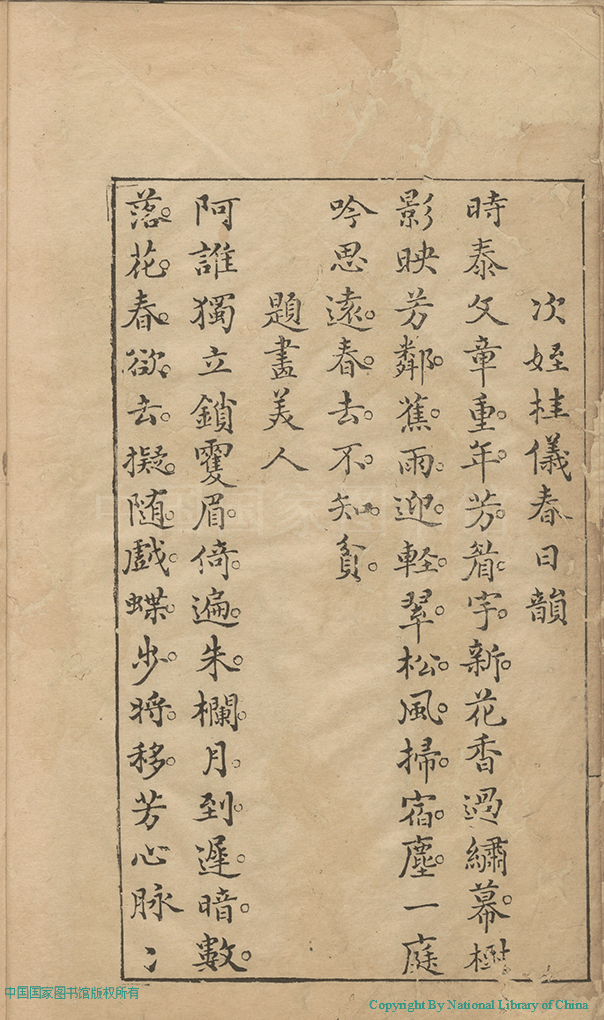 次姪桂儀春日韻
時泰文章重年芳眉宇新花香過繡幕樹
影映芳鄰蕉雨迎軽翠松風掃宿塵一庭
吟思遠春去不知貧
題畫美人
阿誰獨立鎖雙眉倚遍朱欄月到遲暗數
落花春欲去擬随戲蝶步将移芳心脉〻
中国国家图书馆版权所有
Copyright By National Library of China